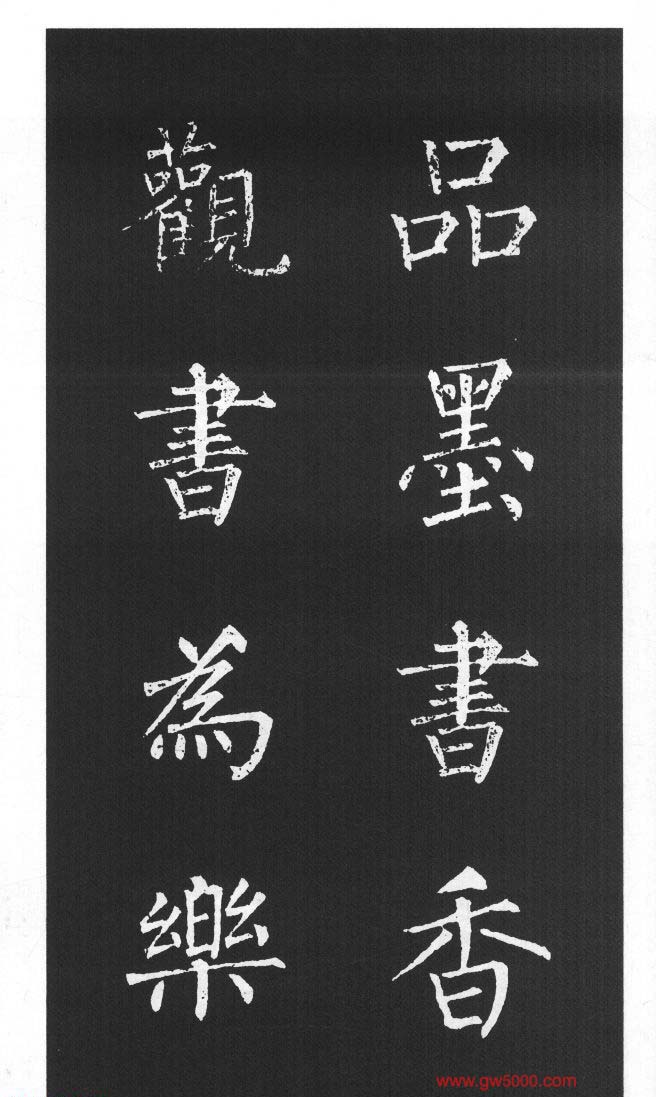 品墨書香
觀書為樂
www.gw5000.com